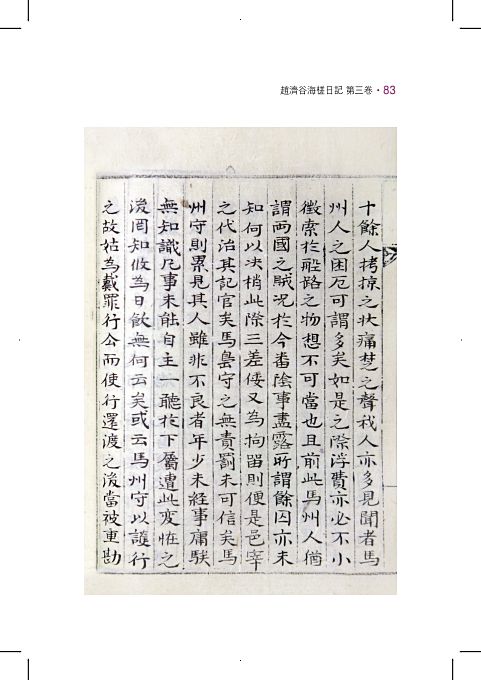 趙濟谷海槎日記 第三卷 · 83
十餘人拷掠之狀痛楚之聲我人亦多見聞者馬
州人之困厄可謂多矣如是之際浮費亦必不小
徵索於般路之物想不可當也且前此馬州人猶
謂兩國之賊況於今番陰事盡露所謂餘囚亦未
知何以决梢此際三差倭又為拘留則便是邑宰
之代治其記官矣馬島守之無責罰未可信矣馬
州守則累見其人雖非不良者年少未経事庸騃
無知識凡事未能自主一聽於下屬遭此変恠之
後罔知攸為日飲無何云矣或云馬州守以護行
之故姑為戴罪行公而使行還渡之後當被重勘